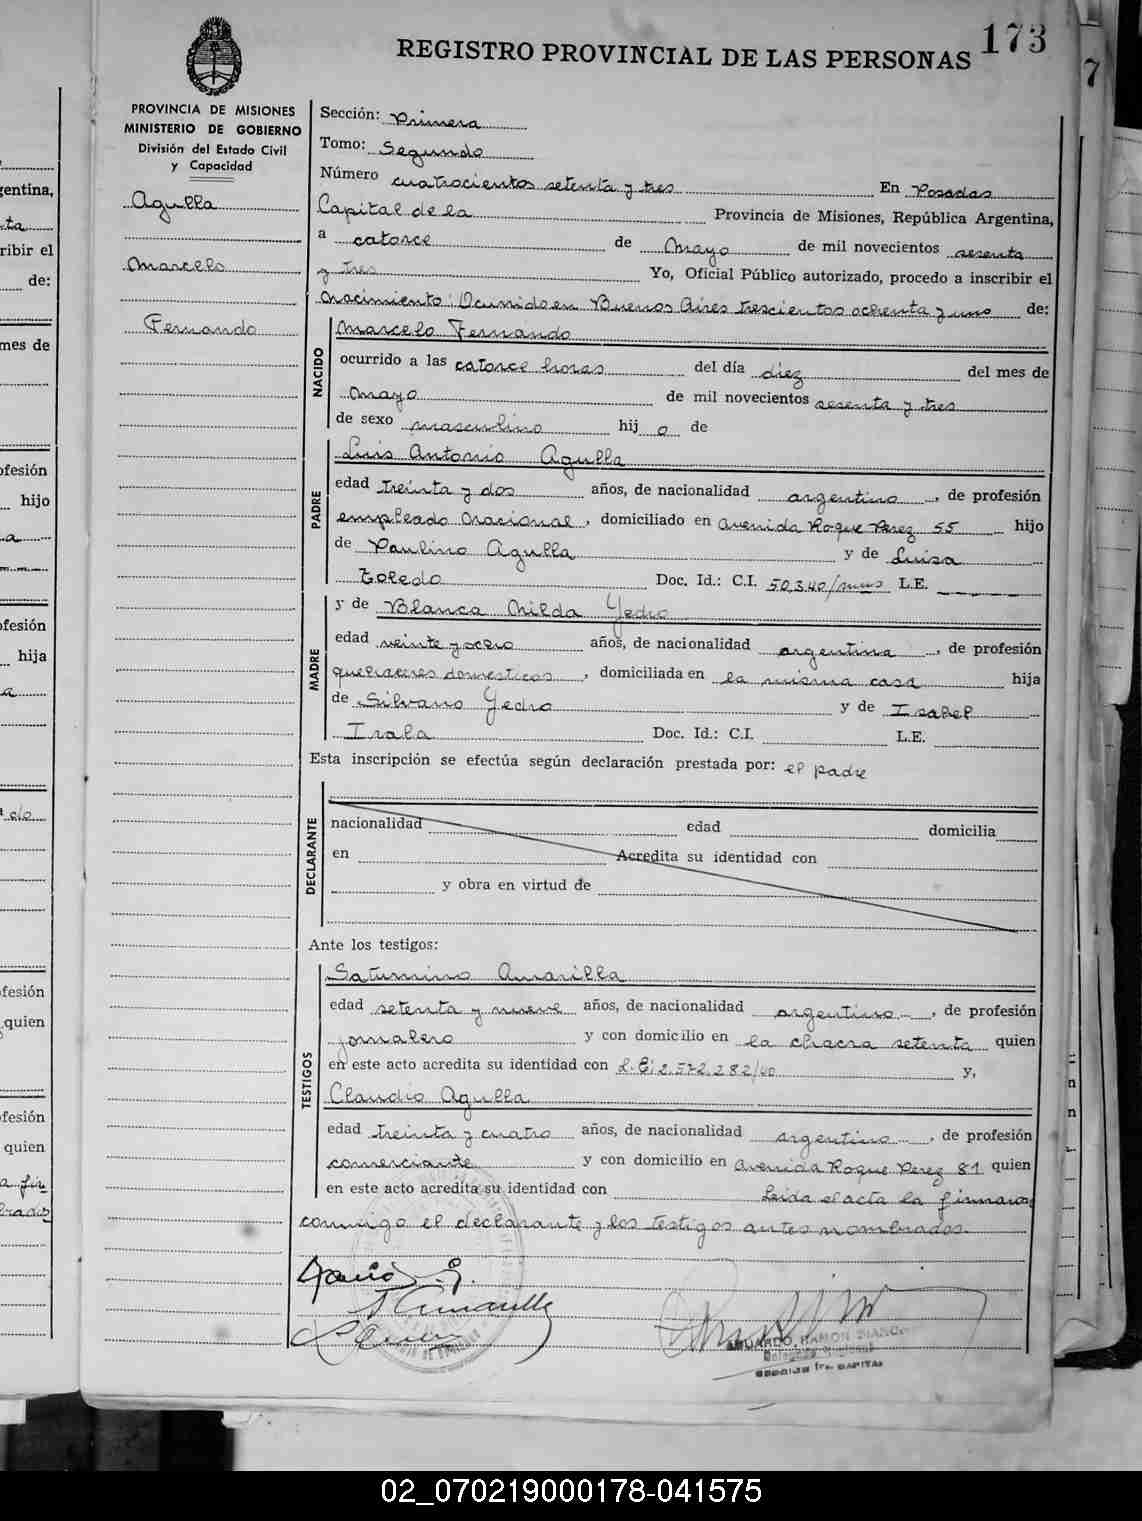 173
REGISTRO PROVINCIAL DE LAS PERSONAS
7
PROVINCIA DE MISIONES
MINISTERIO DE GOBIERNO
División del Estado Civil
y Capacidad
Agulla
Marcelo
Fernando
Sección: Primera
Tomo: Segundo
Número cuatrocientos setenta y tres En Posadas
Capital de la Provincia de Misiones, República Argentina,
a catorce de Mayo de mil novecientos sesenta
y tres Yo, Oficial Público autorizado, procedo a inscribir el
Nacimiento: Ocurrido en Buenos Aires trescientos ochenta y uno de:
NACIDO
Marcelo Fernando
ocurrido a las catorce horas del día diez del mes de
Mayo de mil novecientos sesenta y tres
de sexo masculino hij o de
PADRE
Luis Antonio Agulla
edad treinta y dos años, de nacionalidad argentino, de profesión
empleado Nacional, domiciliado en Avenida Roque Perez 55 hijo
de Paulino Agulla y de Luisa
Toledo Doc. Id.: C.I. 50.340/mnes L.E.
MADRE
y de Blanca Nilda Yedro
edad veinte y ocho años, de nacionalidad argentina, de profesión
quehaceres domesticos, domiciliada en la misma casa hija
de Silvano Yedro y de Isabel
Irala Doc. Id.: C.I. L.E.
Esta inscripción se efectúa según declaración prestada por: el padre
DECLARANTE
nacionalidad edad domicilia
en Acredita su identidad con
y obra en virtud de
Ante los testigos:
TESTIGOS
Saturnino Amarilla
edad setenta y nueve años, de nacionalidad argentino, de profesión
jornalero y con domicilio en la chacra setenta quien
en este acto acredita su identidad con L.E: 2.572.282/40 y,
Claudio Agulla
edad treinta y cuatro años, de nacionalidad argentino, de profesión
comerciante y con domicilio en Avenida Roque Perez 81 quien
en este acto acredita su identidad con Leida el acta la firmaron
conmigo el declarante y los testigos antes nombrados.
S Amarilla
EDUARDO RAMON
SECCION 1ra. CAPITAL
02_070219000178-041575